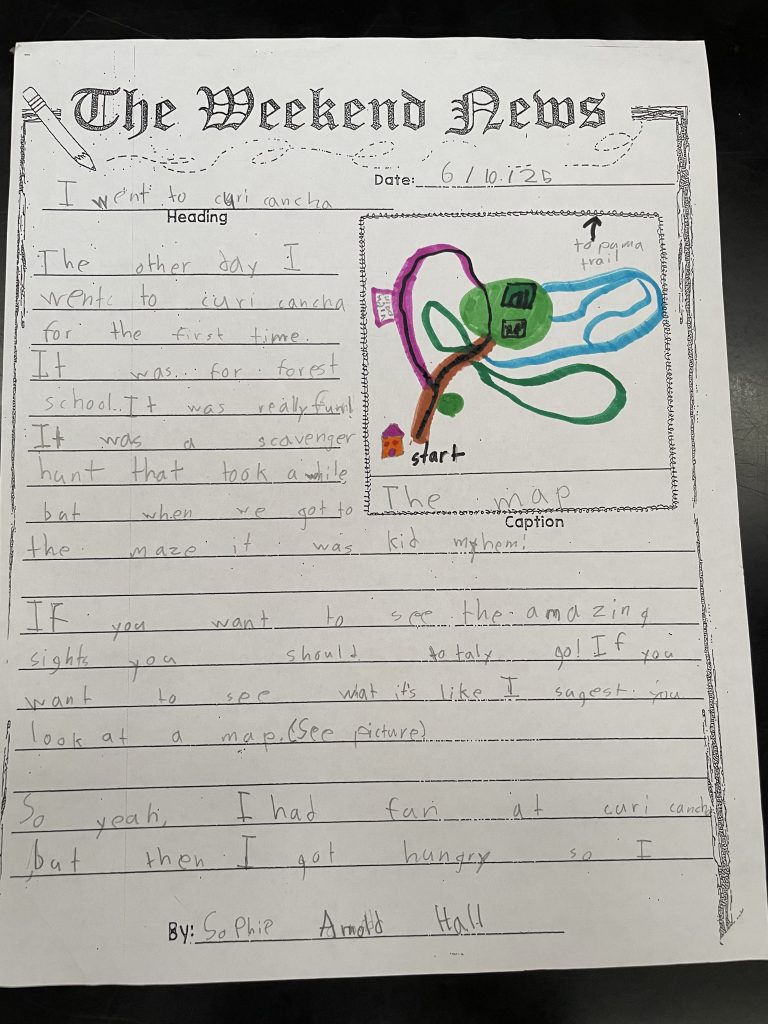 The Weekend News
Date: 6/10/25
I went to curi cancha
Heading
The other day I
went to curi cancha
for the first time.
It was for forest
school. It was really fun!
It was a scavenger
hunt that took a while
but when we got to
the maze it was kid myhem!
to puma
trail
start
The map
Caption
If you want to see the amazing
sights you should totaly go! If you
want to see what it's like I sugest you
look at a map. (See picture)
So yeah, I had fun at curi cancha
but then I got hungry so I
By: Sophie Arnold Hall